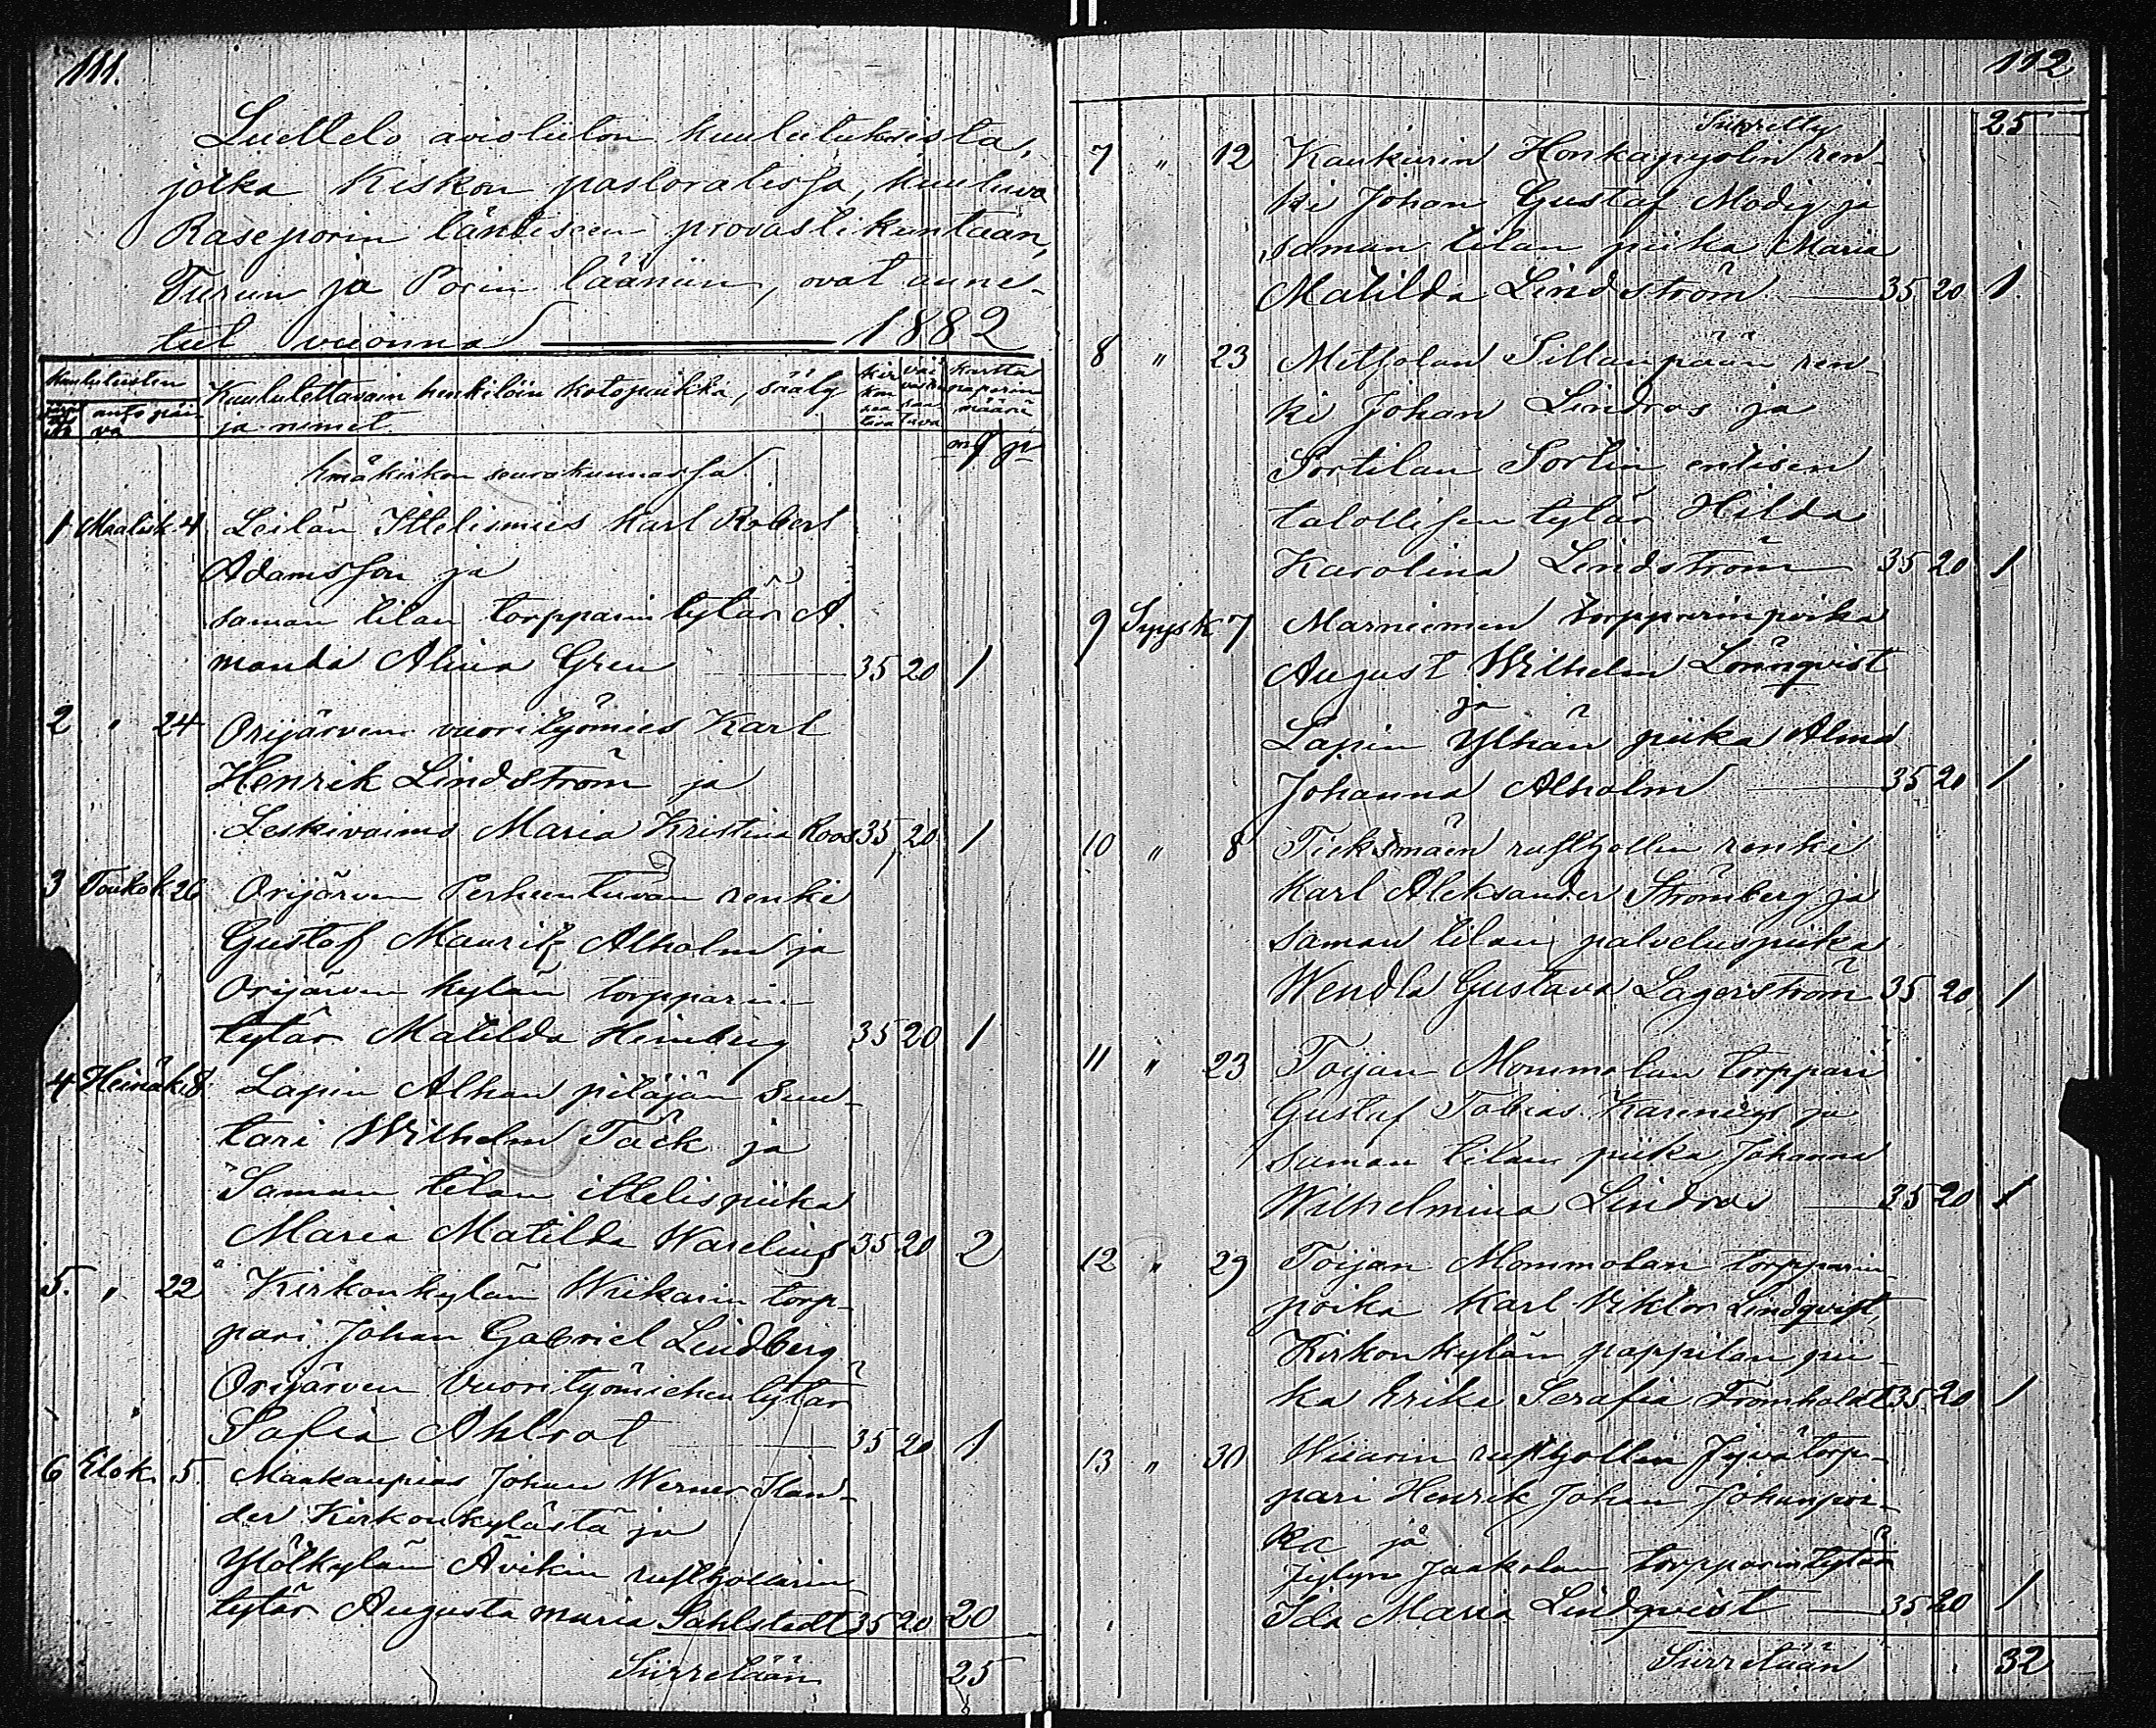 111.
Luettelo avioliiton kuulutuksista,
jotka Kiskon pastoratissa, kuuluva
Raseporin läntiseen provastikuntaan,
Turun ja Porin lääniin, ovat anne-
tut vuonna 1882
Kuulutusten
anto päi
va
Kuulutettavain henkilöin kotopaikka, sääty
ja nimet
kir
kon
vai
vaisten
kartta
paperin
määrä
m p
Emäkirkon seurakunnassa
1 Maalisk. 4 Leilän Ittelismies Karl Robert
Adamsson ja
saman tilan torpparin tytär A.
manda Alina Gren 35 20 1
2 " 24 Orijärven vuorityömies Karl
Henrik Lindström ja
Leskivaimo Maria Kristina Roos 35 20 1
3 Toukok 26 Orijärven Perheentuvan renki
Gustaf Mauritz Alholm ja
Orijärven kylän torpparin
tytär Matilda Heinberg 35 20 1
4 Heinäk. 8 Lapin Alhan pitäjän suu-
tari Wilhelm Tack ja
Saman tilan ittelispiika
Maria Matilda Warelius 35 20 2
5. " 22 Kirkonkylän Wiikarin torp-
pari Johan Gabriel Lindberg
Orijärven Vuorityömiehen tytär
Sofia Ahlrot 35 20 1
6 Elok. 5. Maakaupias Johan Werner
der Kirkonkylästä ja
Ylötkylän Avikin rusthollarin
tytär Augusta Maria Sahlstedt 35 20 20
Siirretään 25
112
Siirretty 25
7 " 12 Kaukurin Honkapyolin ren-
ki Johan Gustaf Modig ja
saman tilan piika Maria
Matilda Lindström 35 20 1.
8 " 23 Metsolan Sillanpään ren-
ki Johan Lindros ja
Sortilan Sortin entisen
talollisen tytär Hilda
Karolina Lindström 35 20 1
9 Syysk 7 Marniemen torpparinpoika
August Wilhelm Lönnqvist
ja
Lapin Ylhän piika Alma
Johanna Alholm 35 20 1
10 " 8 Tieksmäen rusthollin renki
Karl Aleksander Strömberg ja
saman tilan palveluspiika
Wendla Gustava Lagerström 35 20 1
11 " 23 Toijan Mommolan torppari
Gustaf Tobias ja
saman tilan piika Johanna
Wilhelmina Lindros 35 20 1
12 " 29 Toijan Mommolan torpparin-
poika Karl Viktor Lindqvist,
Kirkonkylän pappilan pii-
ka Erika Serafia Fromholdt 35 20 1
13 " 30 Wiiarin rusthollin Jyvä torp-
pari Henrik Johan Johanpoi-
ka ja
Jaakolan torpparin tytär
Ida Maria Lindqvist 35 20 1
Siirretään 32